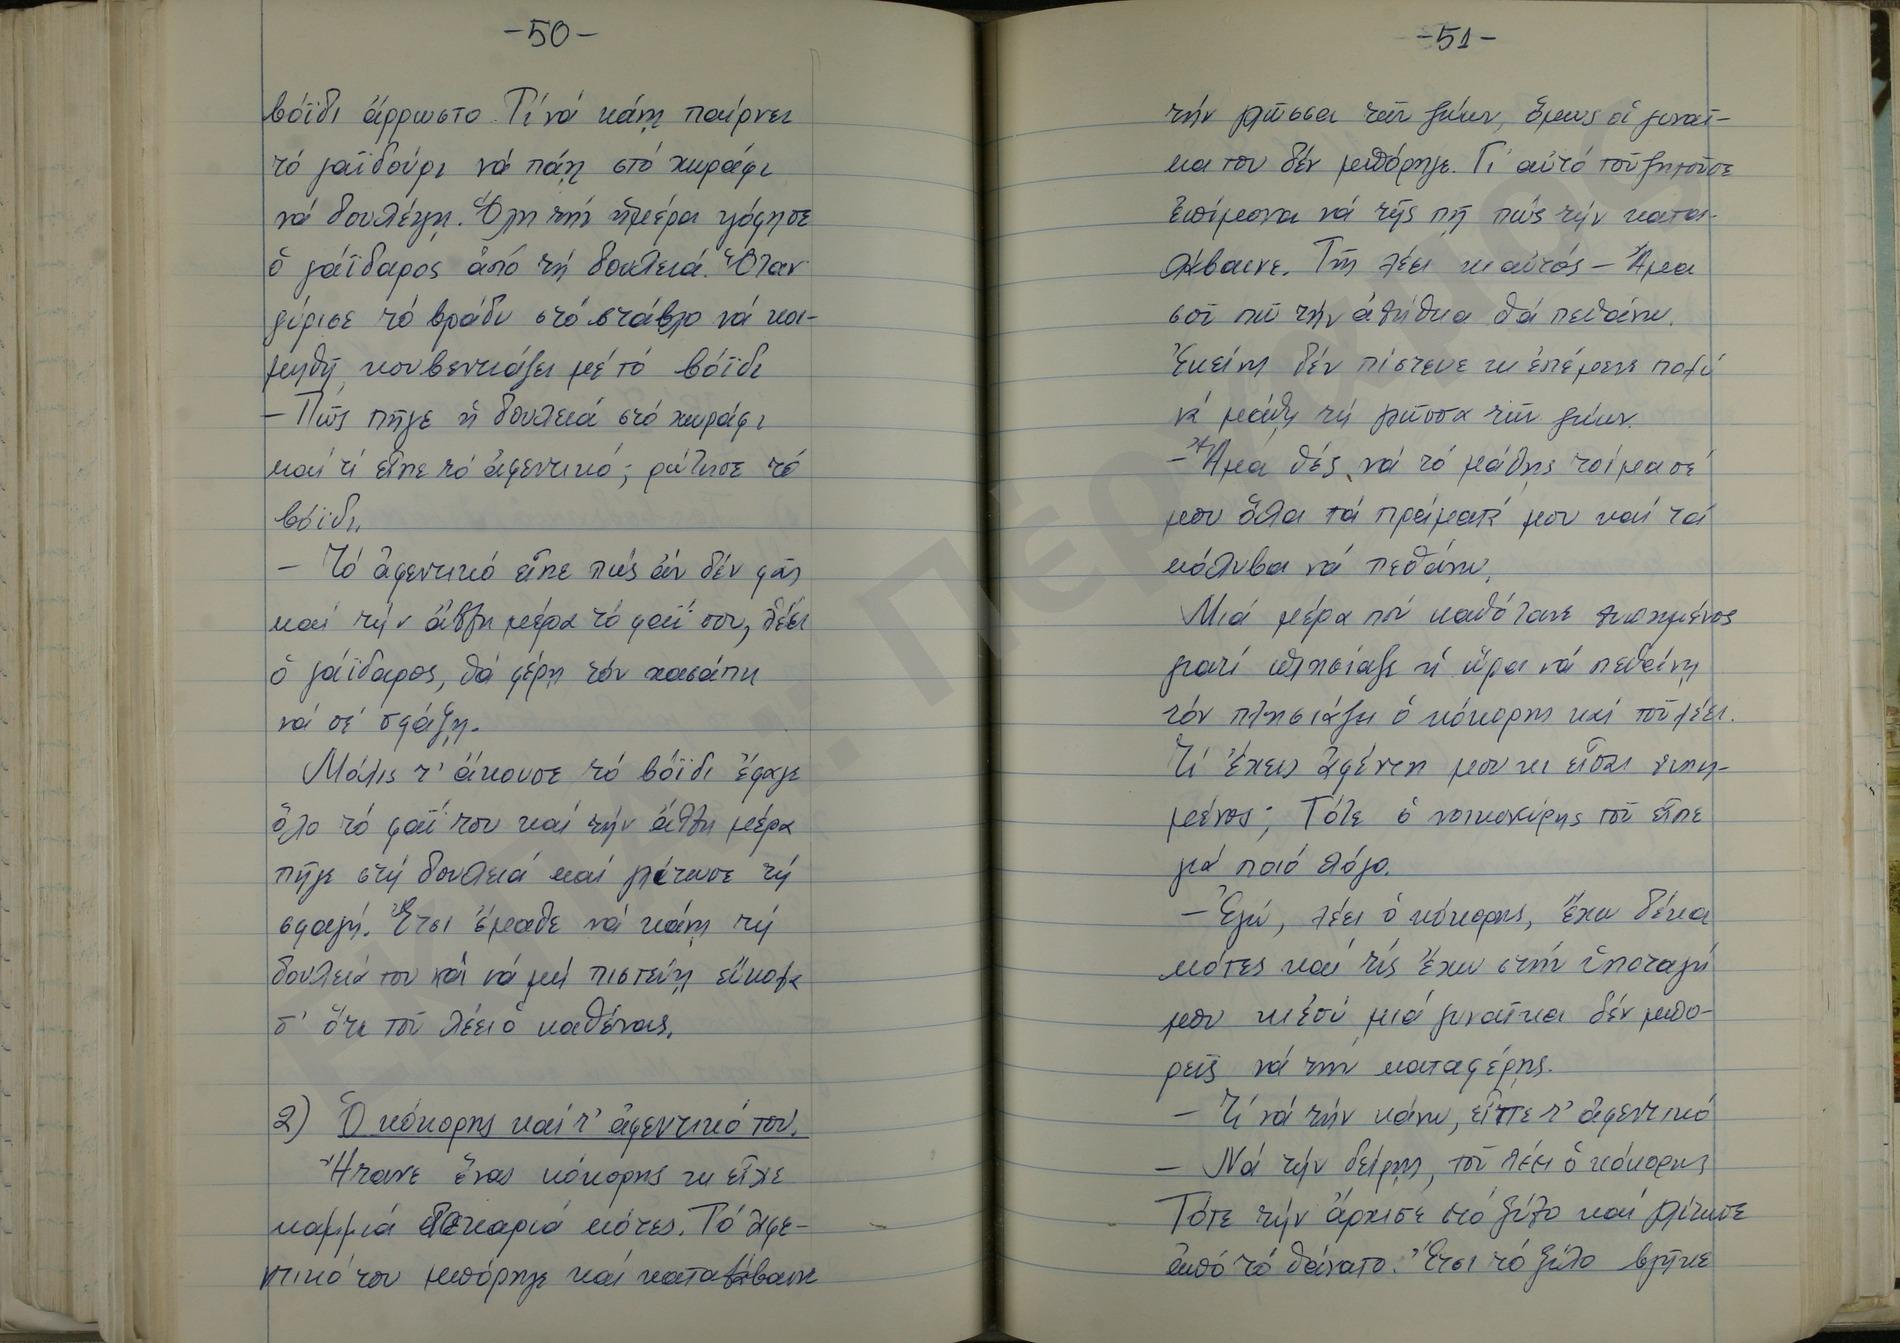 -50-
βόϊδι ἄρρωστο. Τί νά κάνῃ παίρνει
τό γαϊδούρι νά πάῃ στό χωράφι
νά δουλέψῃ. Ὅλη τήν ἡμέρα ψόφησε
ὁ γάϊδαρος ἀπό τή δουλειά. Ὅταν
γύρισε τό βράδυ στό στάβλο νά κοι-
μηθῇ κουβεντιάζει μέ τό βόϊδι
- Πῶς πῆγε ἡ δουλειά στό χωράφι
καί τί εἶπε τό ἀφεντικό; ρώτησε τό
βόϊδι.
- Τό ἀφεντικό εἶπε πώς ἄν δέν φᾶς
καί τήν ἄλλη μέρα τό φαΐ σου, λέει
ὁ γάϊδαρος, θά φέρῃ τόν χασάπη
νά σέ σφάξῃ.
Μόλις τ' ἄκουσε τό βόϊδι ἔφαγε
ὅλο τό φαΐ του καί τήν ἄλλη μέρα
πῆγε στή δουλειά καί γλύτωσε τή
σφαγή. Ἔτσι ἔμαθε νά κάνῃ τή
δουλειά του καί νά μή πιστεύῃ εὔκολα
σ' ὅτι τοῦ λέει ὁ καθένας.
2) Ὁ κόκορης καί τ' ἀφεντικό του.
Ἤτανε ἕνας κόκορης κι εἶχε
καμμιά δεκαριά κότες. Τό ἀφε-
ντικό του μπόρηγε καί καταλάβαινε
-51-
τήν γλῶσσα τῶν ζώων, ὅμως ἡ γυναῖ-
κα του δέν μπόρηγε. Γι' αὐτό τοῦ ζητοῦσε
ἐπίμονα νά τῆς πῇ πώς τήν κατα-
λάβαινε. Τῆς λέει κι αὐτός - Ἅμα
σοῦ πῶ τήν ἀλήθεια θά πεθάνω.
Ἐκείνη δέν πίστευε κι ἐπέμενε πολύ
νά μάθῃ τή γλῶσσα τῶν ζώων.
- Ἅμα θές νά τό μάθῃς τοίμασέ
μου ὅλα τά πράματά μου καί τά
κόλυβα νά πεθάνω.
Μιά μέρα πού καθότανε στενοχωρημένος
γιατί πλησίαζε ἡ ὥρα νά πεθάνῃ
τόν πλησιάζει ὁ κόκορης καί τοῦ λέει.
Τί ἔχεις ἀφέντη μου κι εἶσαι λυπη-
μένος; Τότε ὁ νοικοκύρης τοῦ εἶπε
γιά ποιό λόγο.
- Ἐγώ, λέει ὁ κόκορης, ἔχω δέκα
κότες καί τίς ἔχω στήν ὑποταγή
μου κι ἐσύ μιά γυναῖκα δέν μπο-
ρεῖς νά τήν καταφέρῃς.
- Τί νά τήν κάνω, εἶπε τ' ἀφεντικό
- Νά τήν δείρῃς, τοῦ λέει ὁ κόκορης
Τότε τήν ἄρχισε στό ξύλο καί γλίτωσε
ἀπό τό θάνατο. Ἔτσι τό ξύλο βγῆκε